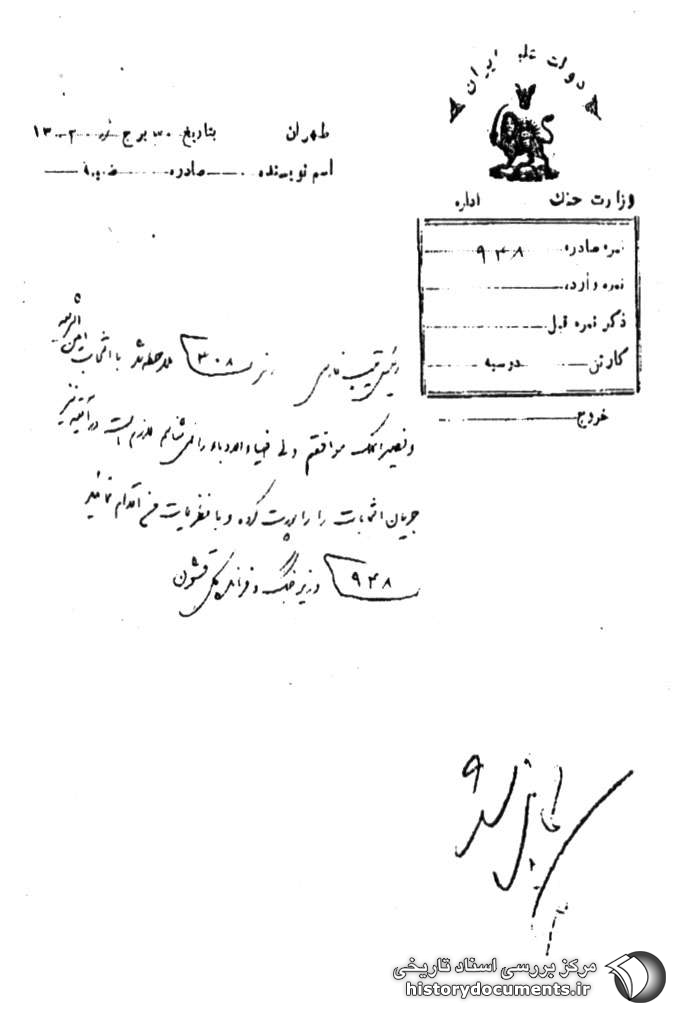 دولت علیه ایران
وزارت جنگ اداره
طهران بتاریخ ۳۰ برج ۱۳۰۲
اسم نویسنده صادره ضمیمه
نمره صادره ۹۴۸
نمره وارده
ذکر نمره قبل
کارتن دوسیه
خروج
رئیس تیپ فارس نمره ۳۰۸ ملاحظه شد با انتخاب
موافقم ولی را نمی‌شناسم لازم است در آتیه نیز
جریان انتخابات را راپورت کرده و با نظریات من اقدام نمائید
۹۴۸ وزیر جنگ و فرمانده کل قشون
مرکز بررسی اسناد تاریخی
historydocuments.ir